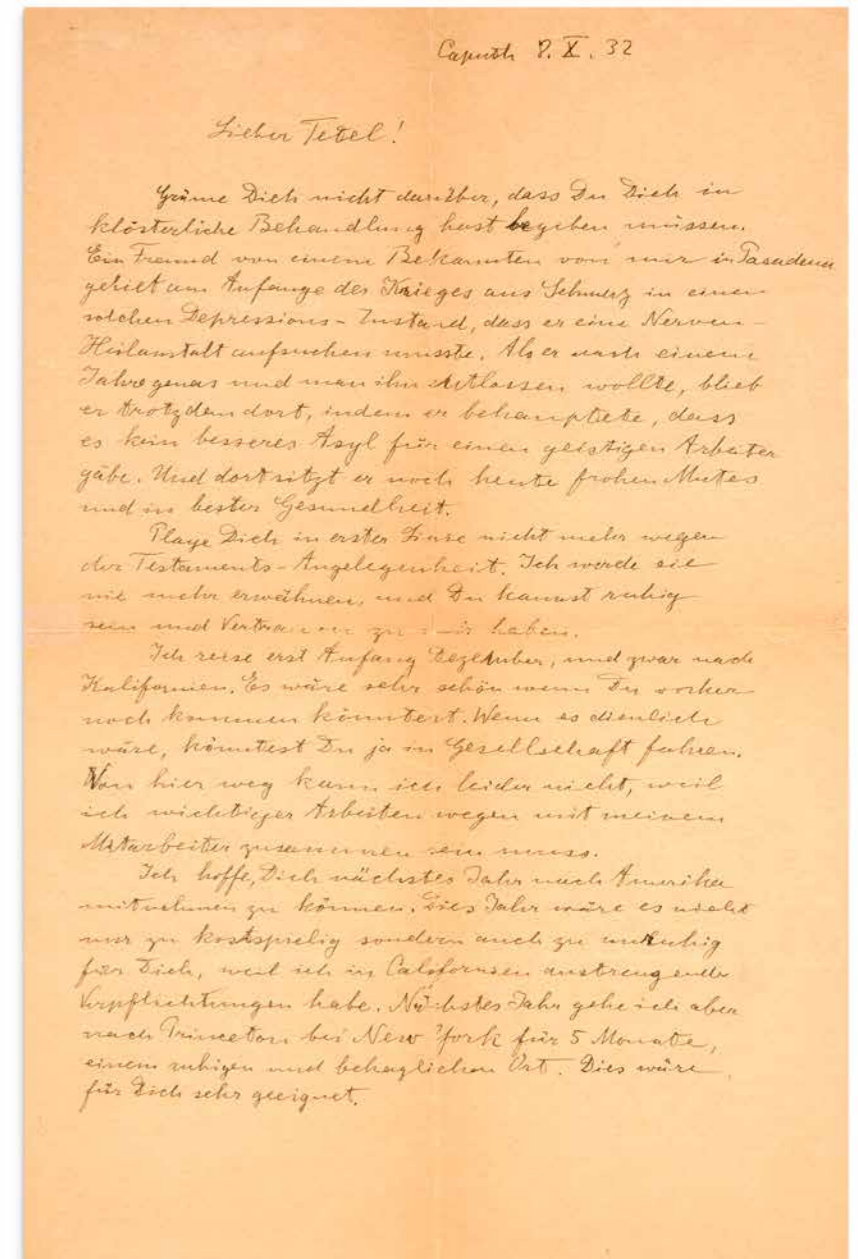 Caputh 8. X. 32
Lieber Tetel!
Gräme Dich nicht darüber, dass Du Dich in
klösterliche Behandlung hast begeben müssen.
Ein Freund von einem Bekannten von mir in Pasadena
geriet am Anfange des Krieges aus Schmerz in einen
solchen Depressions-Zustand, dass er eine Nerven-
Heilanstalt aufsuchen musste. Als er nach einem
Jahre genas und man ihn entlassen wollte, blieb
er trotzdem dort, indem er behauptete, dass
es kein besseres Asyl für einen geistigen Arbeiter
gäbe. Und dort sitzt er noch heute frohen Mutes
und in bester Gesundheit.
Plage Dich in erster Linie nicht mehr wegen
der Testaments-Angelegenheit. Ich werde sie
nie mehr erwähnen, und Du kannst ruhig
sein und Vertrauen zu mir haben.
Ich reise erst Anfang Dezember, und zwar nach
Kalifornien. Es wäre sehr schön wenn Du vorher
noch kommen könntest. Wenn es dienlich
wäre, könntest Du ja in Gesellschaft fahren.
Von hier weg kann ich leider nicht, weil
ich wichtiger Arbeiten wegen mit meinem
Mitarbeiter zusammen sein muss.
Ich hoffe, Dich nächstes Jahr nach Amerika
mitnehmen zu können. Dies Jahr wäre es nicht
nur zu kostspielig sondern auch zu unruhig
für Dich, weil ich in Californien anstrengende
Verpflichtungen habe. Nächstes Jahr gehe ich aber
nach Princeton bei New York für 5 Monate,
einem ruhigen und behaglichen Ort. Dies wäre
für Dich sehr geeignet.